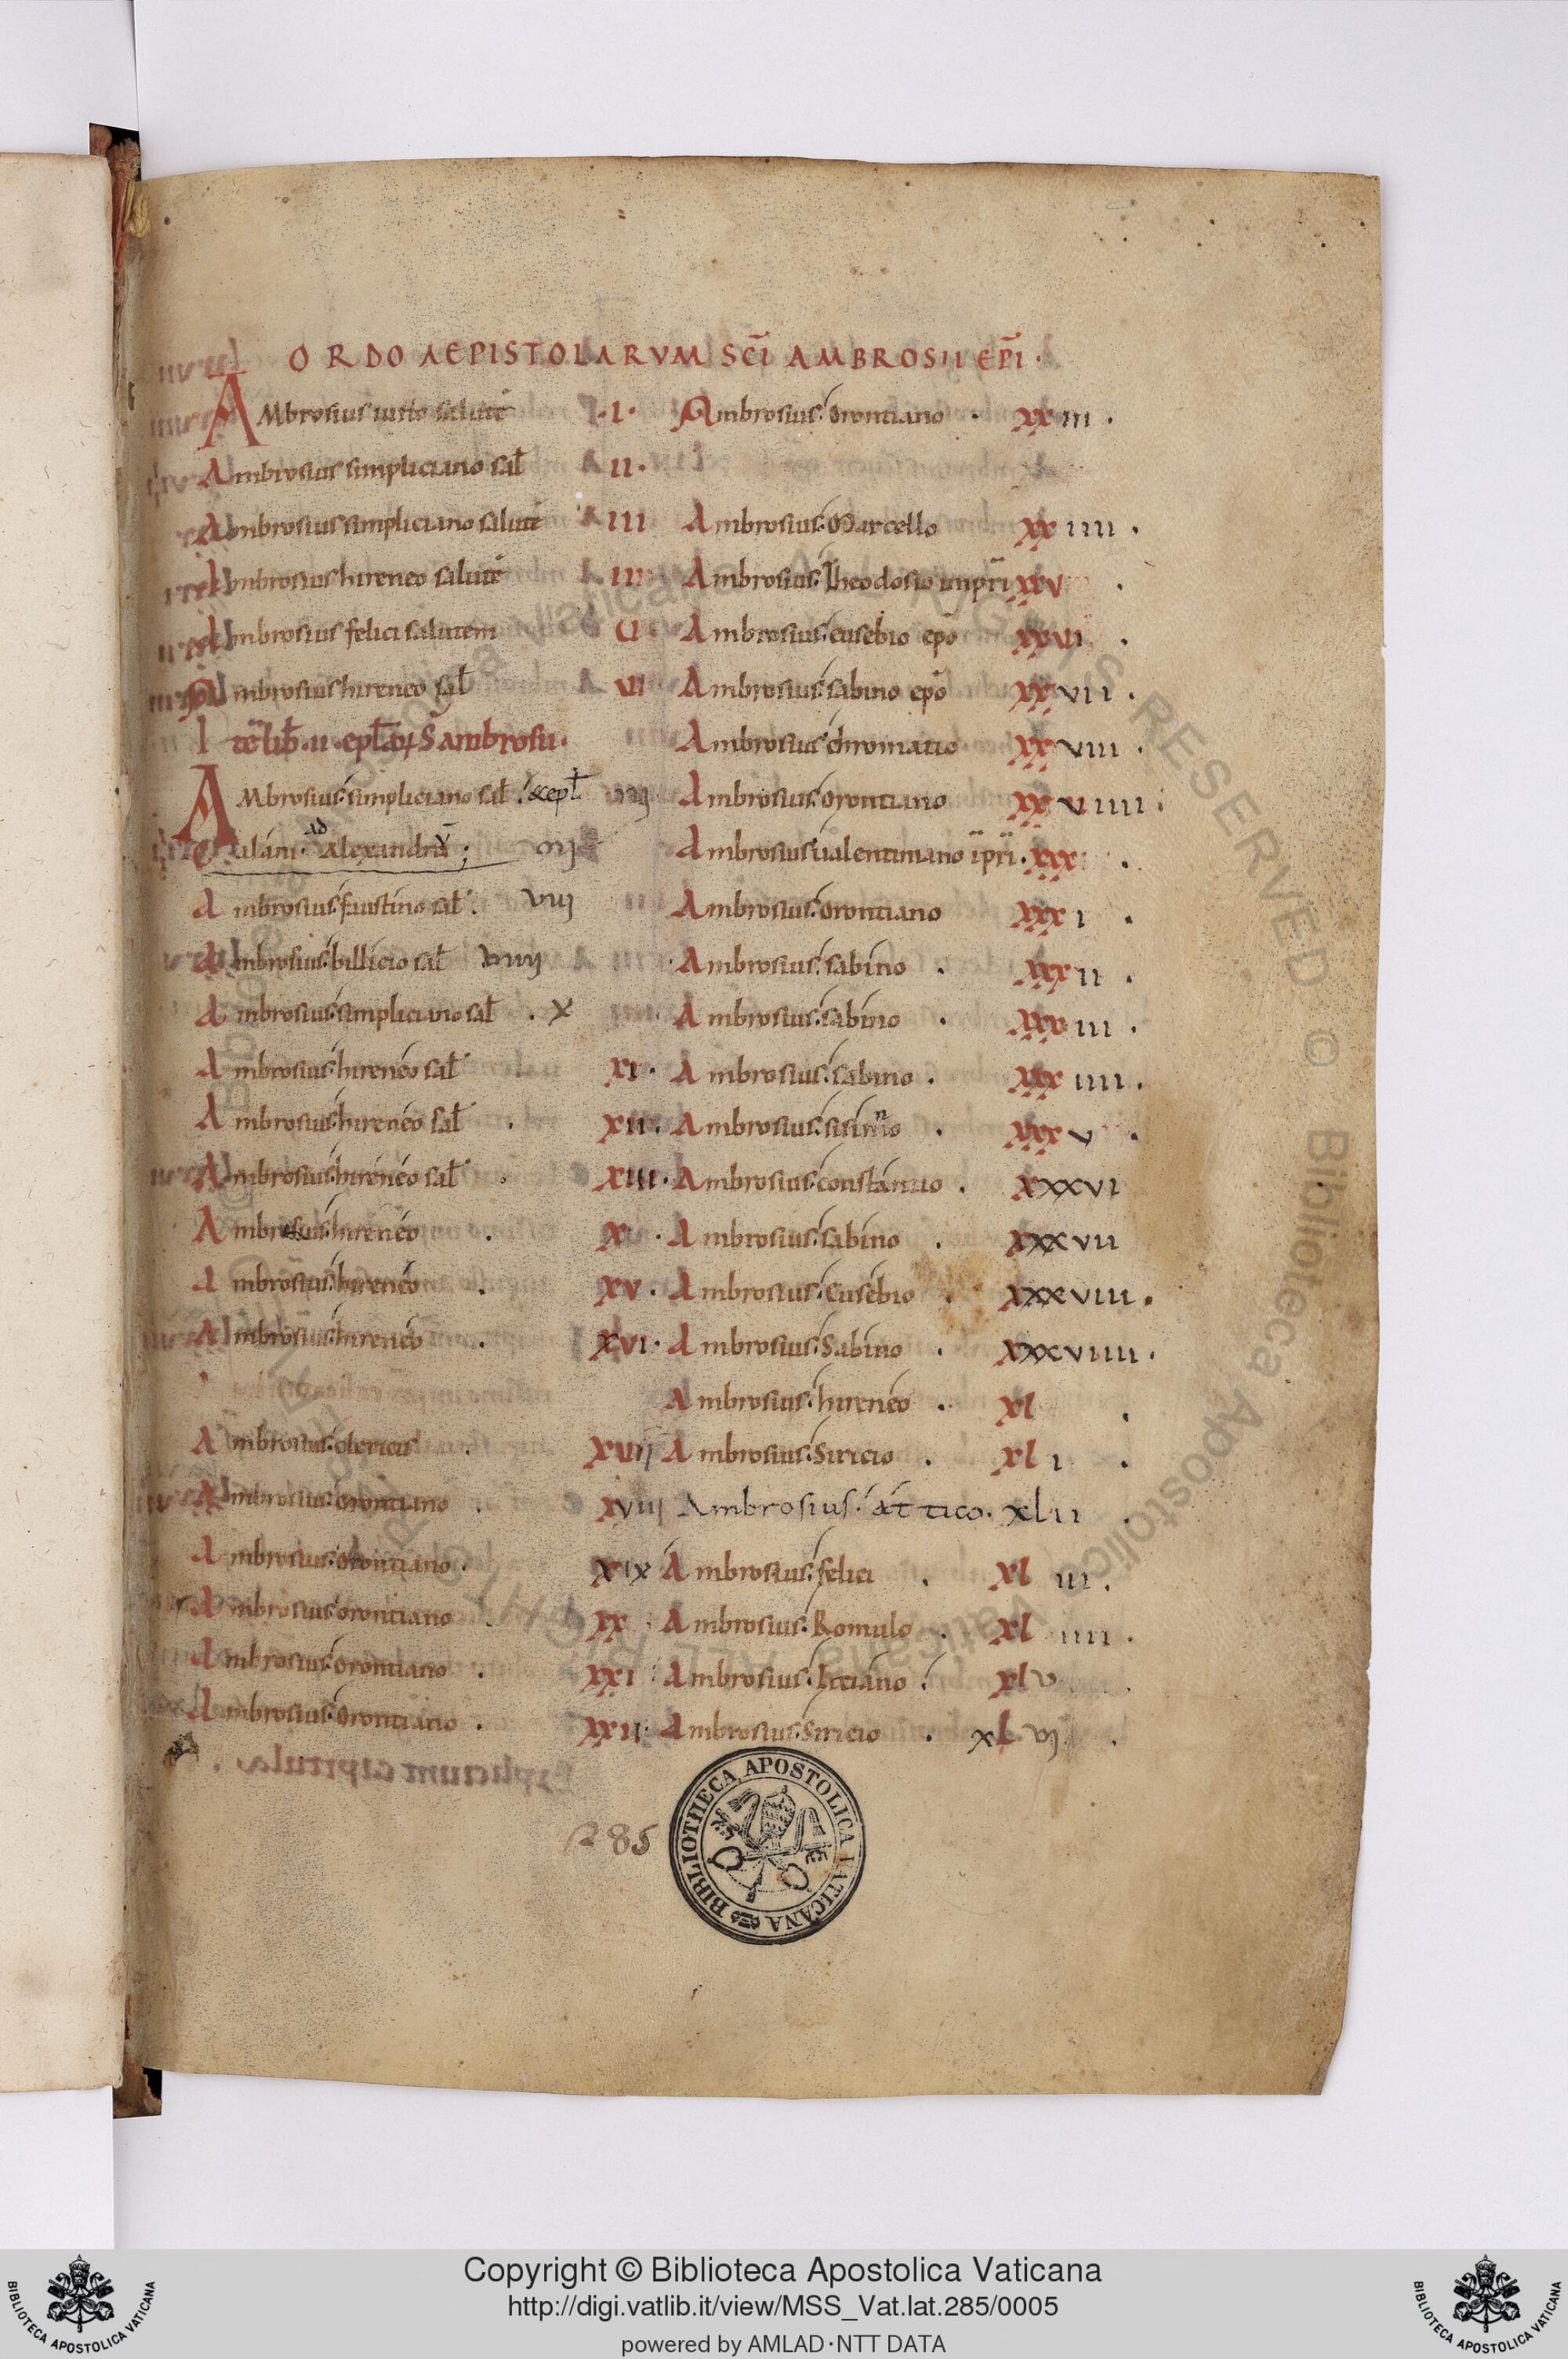 ORDO AEPISTOLARVM SCĪ AMBROSII EPĪ·
AMbrosius iusto salutē ·I·
Ambrosius simpliciano sał II·
Ambrosius simpliciano salutē III
Ambrosius hireneo salutē
Ambrosius felici salutem
Ambrosius hireneo sał VI
Itē lib̄·II·epłarꝝ S̄ ambrosii·
AMbrosius simpliciano sał
Alexandrū;
Ambrosius faustino sał. VIIJ
Ambrosius billicio sał VIIIJ
Ambrosius simpliciano sał · X
Ambrosius hireneo sał XI·
Ambrosius hireneo sał · XII·
Ambrosius hireneo sał · XIII·
Ambrosius hireneo ·
Ambrosius hireneo · XV·
Ambrosius hireneo · XVI·
Ambrosius clericis · XVIJ
Ambrosius orontiano · XVIIJ
Ambrosius orontiano · XIX
Ambrosius orontiano · XX
Ambrosius orontiano · XXI
Ambrosius orontiano · XXII
Ambrosius orontiano · XXIII·
Ambrosius Marcello XXIIII·
Ambrosius Theodosio impr̄i XXV·
Ambrosius eusebio ep̄o XXVI·
Ambrosius sabino ep̄o XXVII·
Ambrosius chromatio XXVIII·
Ambrosius orontiano XXVIIII·
Ambrosius ualentiniano īpr̄i· XXX·
Ambrosius orontiano XXXI·
Ambrosius sabino · XXXII·
Ambrosius sabino · XXXIII·
Ambrosius sabino · XXXIIII·
Ambrosius sisinnio · XXXV·
Ambrosius constantio · XXXVI
Ambrosius sabino · XXXVII
Ambrosius eusebio · XXXVIII·
Ambrosius Sabino · XXXVIIII·
Ambrosius hireneo · Xl·
Ambrosius Siricio · XlI·
Ambrosius attico· XlII·
Ambrosius felici · XlIII·
Ambrosius Romulo · XlIIII·
Ambrosius XlV·
Ambrosius Siricio · XlVI·
285
BIBLIOTHECA APOSTOLICA VATICANA
Copyright © Biblioteca Apostolica Vaticana
http://digi.vatlib.it/view/MSS_Vat.lat.285/0005
powered by AMLAD·NTT DATA
BIBLIOTECA APOSTOLICA VATICANA
BIBLIOTECA APOSTOLICA VATICANA